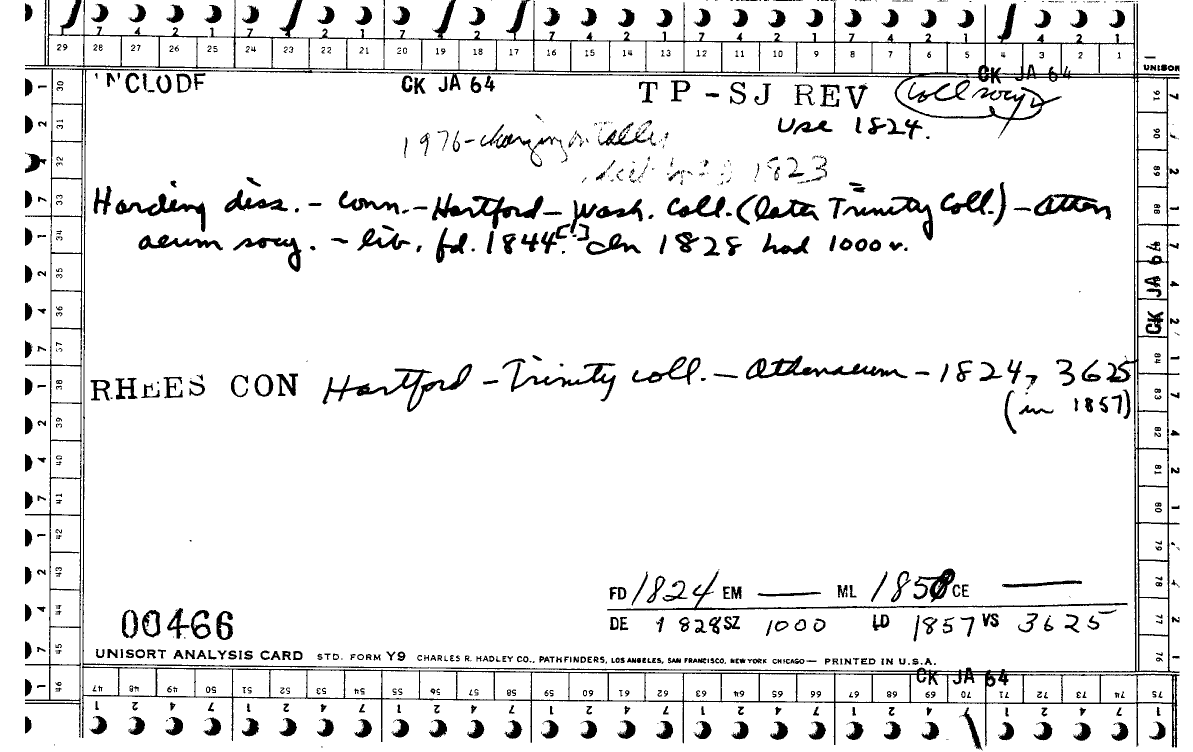 7 4 2 1 7 4 2 1 7 4 2 1 7 4 2 1 7 4 2 1 7 4 2 1 7 4 2 1
29 28 27 26 25 24 23 22 21 20 19 18 17 16 15 14 13 12 11 10 9 8 7 6 5 4 3 2 1
UNISOR
CK JA 64
CK JA 64
TP-SJ REV Coll socy
Use 1824.
1976-changing on tally
1823
Harding diss. - Conn. - Hartford - Wash. Coll. (later Trinity Coll.) - Athen
aeum socy. - lib. fd. 1844[!] In 1828 had 1000 v.
RHEES CON Hartford - Trinity coll. - Athenaeum - 1824, 3625
(in 1857)
FD 1824 EM — ML 1858 CE —
DE 1828 SZ 1000 LD 1857 VS 3625
00466
UNISORT ANALYSIS CARD STD. FORM Y9 CHARLES R. HADLEY CO., PATHFINDERS, LOS ANGELES, SAN FRANCISCO, NEW YORK CHICAGO — PRINTED IN U.S.A.
CK JA 64
30 31 32 33 34 35 36 37 38 39 40 41 42 43 44 45 46
47 48 49 50 51 52 53 54 55 56 57 58 59 60 61 62 63 64 65 66 67 68 69 70 71 72 73 74 75
91 90 89 88 84 83 82 81 80 79 78 77 76
CK JA 64